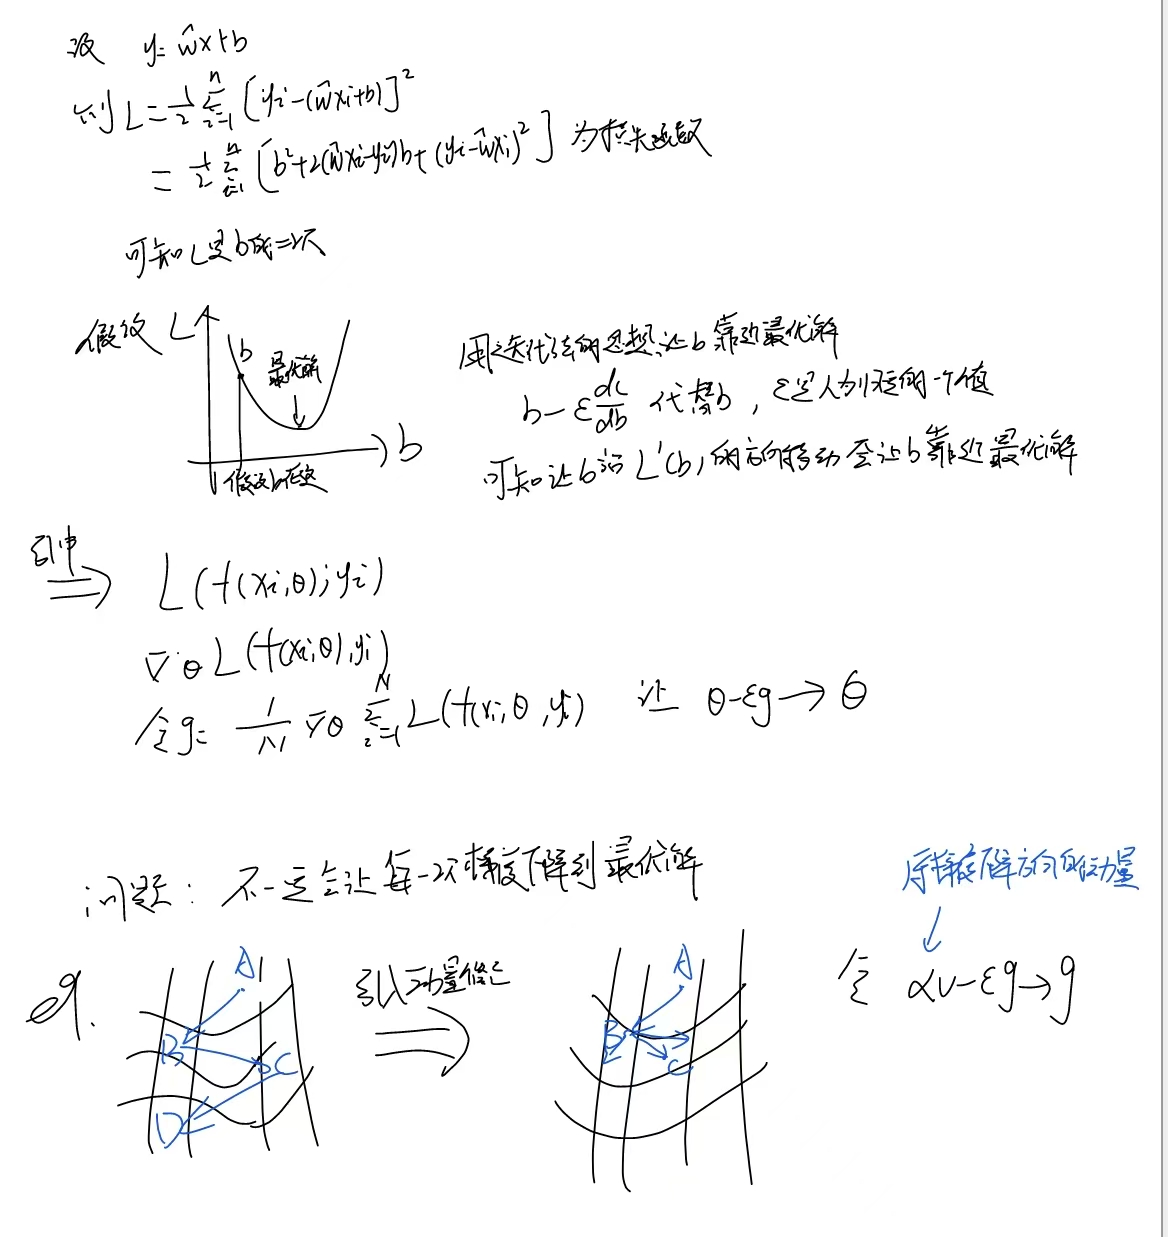 设 y=ŵx+b
则 L=1/2 Σ_{i=1}^{n} [yi-(ŵxi+b)]²
= 1/2 Σ_{i=1}^{n} [b²+2(ŵxi-yi)b+(yi-ŵxi)²] 为损失函数
可知L是b的二次
假设 L
b
最优解
b
假设b在这
用迭代法的思想让b靠近最优解
b-ε dL/db 代替b，ε是人为设定的一个值
可知让b沿L'(b)的方向移动会让b靠近最优解
引申
⇒ L(f(xi,θ);yi)
∇θ L(f(xi,θ),yi)
令g= 1/N ∇θ Σ_{i=1}^{N} L(f(xi,θ,yi) 让 θ-εg→θ
问题：不一定会让每一次梯度下降到最优解
原梯度下降方向的动量
令 αv-εg→g
eg.
A
B
C
D
引入动量修正
⇒
A
B
C